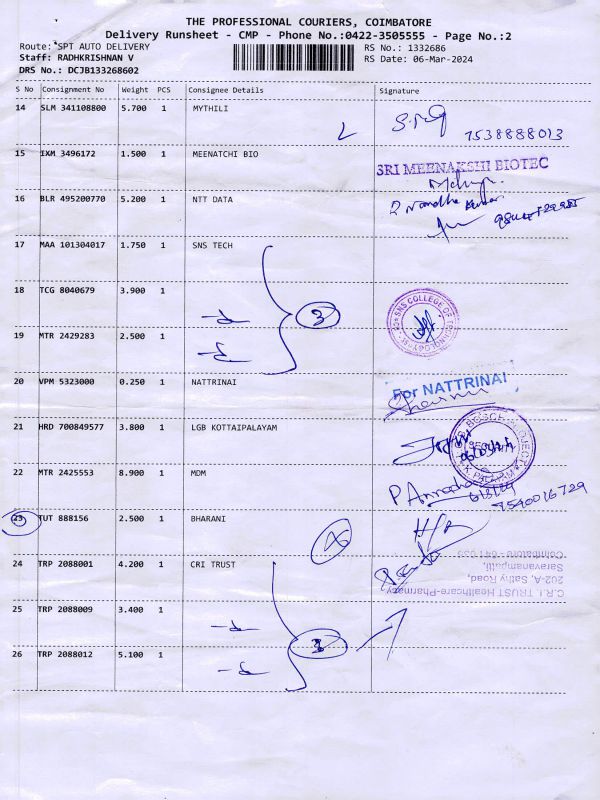 THE PROFESSIONAL COURIERS, COIMBATORE
Delivery Runsheet - CMP - Phone No.:0422-3505555 - Page No.:2
Route: SPT AUTO DELIVERY
RS No.: 1332686
Staff: RADHKRISHNAN V
RS Date: 06-Mar-2024
DRS No.: DCJB133268602
S No Consignment No Weight PCS Consignee Details Signature
14 SLM 341108800 5.700 1 MYTHILI
7538888013
15 IXM 3496172 1.500 1 MEENATCHI BIO
SRI MEENAKSHI BIOTEC
16 BLR 495200770 5.200 1 NTT DATA
17 MAA 101304017 1.750 1 SNS TECH
18 TCG 8040679 3.900 1
3
SNS COLLEGE OF TECHNOLOGY
19 MTR 2429283 2.500 1
20 VPM 5323000 0.250 1 NATTRINAI
For NATTRINAI
21 HRD 700849577 3.800 1 LGB KOTTAIPALAYAM
22 MTR 2425553 8.900 1 MDM
7540016729
23 TUT 888156 2.500 1 BHARANI
24 TRP 2088001 4.200 1 CRI TRUST
C.R.I. TRUST Healthcare-Pharmacy
202-A, Sathy Road,
Saravanampatti,
Coimbatore - 641 035
25 TRP 2088009 3.400 1
26 TRP 2088012 5.100 1